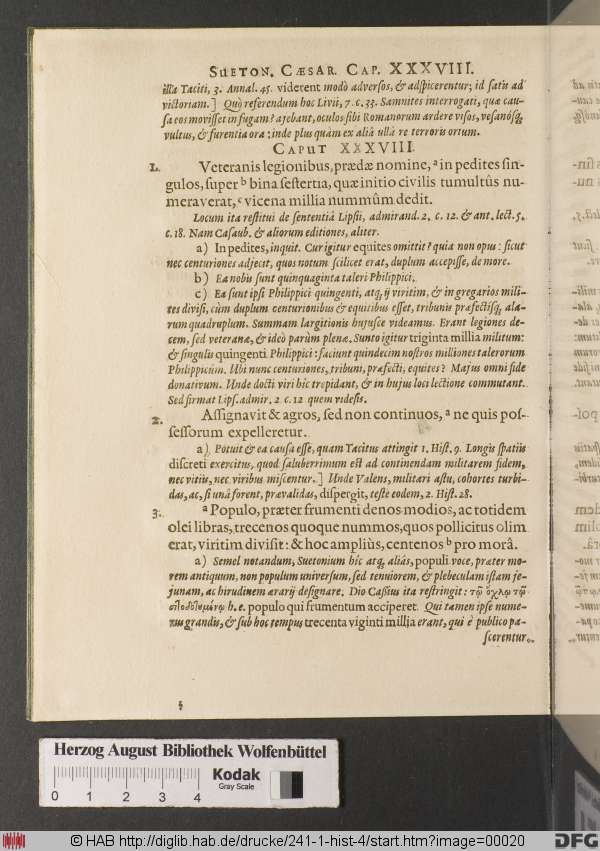 SUETON. CÆSAR. CAP. XXXVIII.
illa Taciti, 3. Annal. 45. viderent modò adversos, & adspicerentur; id satis ad
victoriam.] Quò referendum hoc Livii, 7. c. 33. Samnites interrogati, quæ cau-
sa eos movisset in fugam? ajebant, oculos sibi Romanorum ardere visos, vesanósq;
vultus, & furentia ora: inde plus quàm ex aliâ ullâ re terroris ortum.
CAPUT XXXVIII.
1. Veteranis legionibus, prædæ nomine, a in pedites sin-
gulos, super b bina sestertia, quæ initio civilis tumultûs nu-
meraverat, c vicena millia nummûm dedit.
Locum ita restitui de sententiâ Lipsii, admirand. 2. c. 12. & ant. lect. 5.
c. 18. Nam Casaub. & aliorum editiones, aliter.
a) In pedites, inquit. Cur igitur equites omittit? quia non opus: sicut
nec centuriones adjecit, quos notum scilicet erat, duplum accepisse, de more.
b) Ea nobis sunt quinquaginta taleri Philippici.
c) Ea sunt ipsi Philippici quingenti, atq; ij viritim, & in gregarios mili-
tes divisi, cùm duplum centurionibus & equitibus esset, tribunis præfectisq; ala-
rum quadruplum. Summam largitionis hujusce videamus. Erant legiones de-
cem, sed veteranæ, & ideò parùm plenæ. Sunto igitur triginta millia militum:
& singulis quingenti Philippici: faciunt quindecim nostros milliones talerorum
Philippicûm. Ubi nunc centuriones, tribuni, præfecti, equites? Majus omni fide
donativum. Unde docti viri hic trepidant, & in hujus loci lectione commutant.
Sed firmat Lips. admir. 2. c. 12 quem videsis.
2. Assignavit & agros, sed non continuos, a ne quis pos-
sessorum expelleretur.
a) Potuit & ea causa esse, quam Tacitus attingit 1. Hist. 9. Longis spatiis
discreti exercitus, quod saluberrimum est ad continendam militarem fidem,
nec vitiis, nec viribus miscentur.] Unde Valens, militari astu, cohortes turbi-
das, ac, si unà forent, prævalidas, dispergit, teste eodem, 2. Hist. 28.
3. a Populo, præter frumenti denos modios, ac totidem
olei libras, trecenos quoque nummos, quos pollicitus olim
erat, viritim divisit: & hoc ampliùs, centenos b pro morâ.
a) Semel notandum, Suetonium hîc atq; aliàs, populi voce, præter mo-
rem antiquum, non populum universum, sed tenuiorem, & plebeculam istam je-
junam, ac hirudinem ærarij designare. Dio Cassius ita restringit: τῷ ὄχλῳ τῷ
σιτοδοτουμένῳ h. e. populo qui frumentum acciperet. Qui tamen ipse nume-
rus grandis, & sub hoc tempus trecenta viginti millia erant, qui è publico pa-
scerentur.
Herzog August Bibliothek Wolfenbüttel
Kodak
Gray Scale
0 1 2 3 4
© HAB http://diglib.hab.de/drucke/241-1-hist-4/start.htm?image=00020
DFG